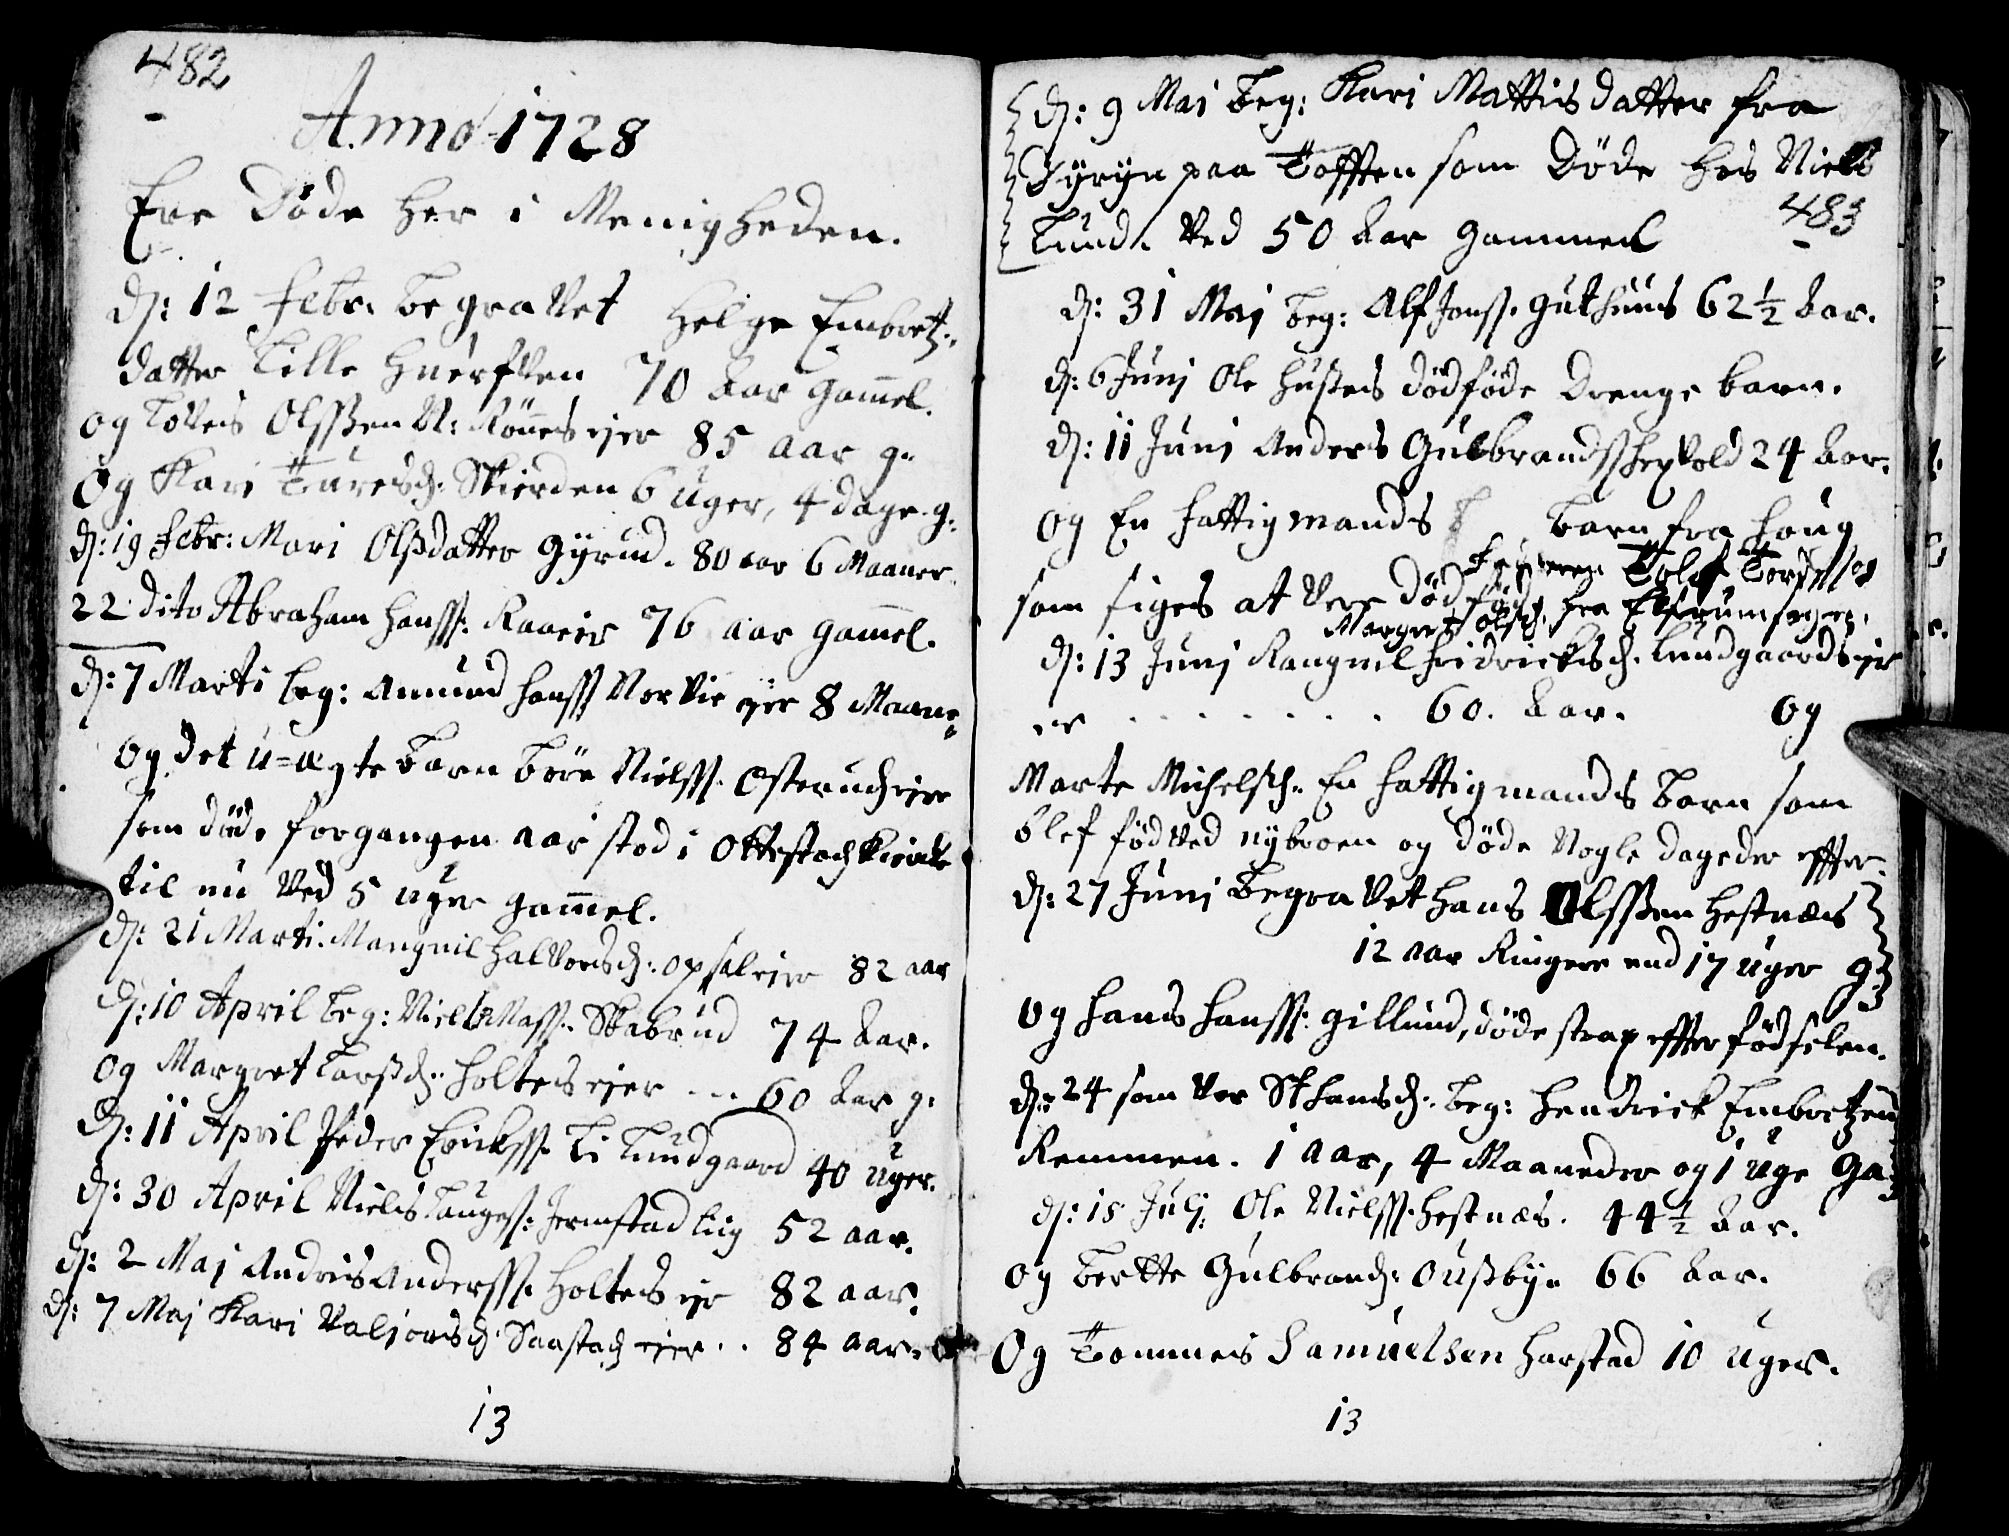 482
Anno 1728
Ere Døde her i Menigheden.
d: 12 Febr. begravet Helge Embretz-
datter Lille Huerfven 70 Aar gamel.
og Tovis Olssen N: Rønes ejer 85 aar g.
Og Kari Turesd: Skierden 6 uger, 4 dage g:
d: 19 Febr: Mari Olsdatter Gyrud. 80 aar 6 Maaner
22 dito Abraham Hanss: Raaeie 76 aar gamel.
d: 7 Marti beg: Amund Hanss Norvie eje 8 Maane
og det u=ægte barn Børe Nielss. Osterud ejer
som døde forgangen aar stod i Ottestad Kircke
til nu ved 5 uger gamel.
d: 21 Marti. Mangnil Halvorsd: opsal eje 82 aar
d: 10 April beg: Niels Mass. Skabrud 74 Aar.
og Margret Larsd: Holtes ejer ... 60 Aar g:
d: 11 April Peder Ericks. Li Lundgaard 40 uger.
d: 30 April Niels Laugs: Jermstad lig 52 aar.
d: 2 Maj Andris Anderss. Holtes eje 82 aar.
d: 7 Maj Kari Valjorsd. Saastad ejer .. 84 aar.
13
d: 9 Mai beg: Kari Mattisdatter fra
paa Tofften som Døde hos Niels
483
Lund. ved 50 Aar gammel
d: 31 Maj beg: Alf Jonss. Guthuus 62 1/2 Aar.
d: 6 Junj Ole Hussers dødføde drenge barn.
d: 11 Junj Anders Gulbrandss 24 Aar.
og En fattigmands barn fra Houg
Tolof
som siges at vere død fød
Margret Olsd. fra Elfrumsogen.
d: 13 Junj Rangnil Fridricksd. Lundgaards eje
er . . . . . . . 60. Aar. og
Marte Michelsd. En fattigmands barn som
blef fød ved nybroen og døde Nogle dageder effter.
d: 27 Junj begravet Hans Olssen Hestnæs
12 aar Ringere end 17 uger g
og Hans Hanss: gillund, døde strax effter fødselen.
d: 24 som var St Hansd. beg: Hendrick Embretzen
Remmen. 1 aar, 4 Maaneder og 1 uge ga
d: 18 Julj: Ole Nielss. Hestnæs. 44 1/2 Aar.
og Berthe Gulbrand: Oußby. 66 Aar.
Og Tommes Samuelsen Harstad 10 uger.
13